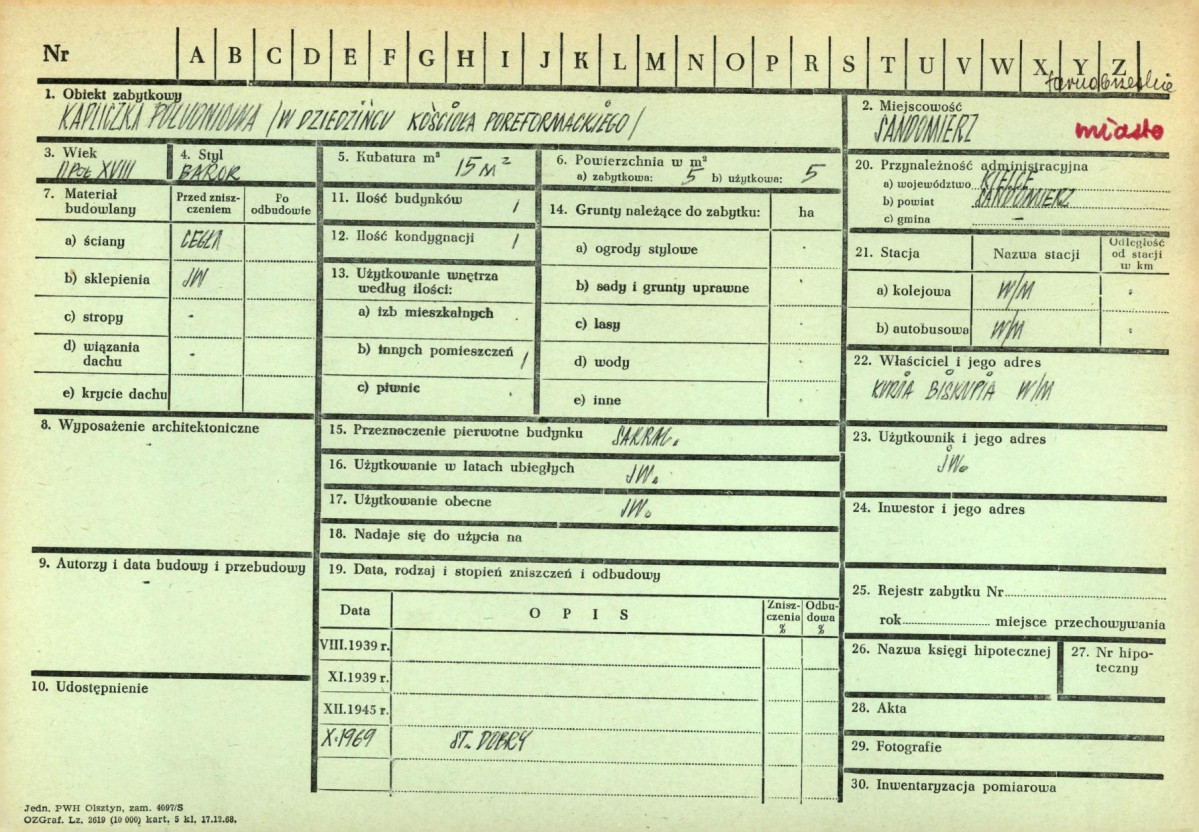 Nr A B C D E F G H I J K L M N O P R S T U V W X Y Z
tarnobrzeskie
1. Obiekt zabytkowy
KAPLICZKA POŁUDNIOWA /W DZIEDZIŃCU KOŚCIOŁA POREFORMACKIEGO/
2. Miejscowość
SANDOMIERZ miasto
3. Wiek
II POŁ XVIII
4. Styl
BAROK
5. Kubatura m³ 15 M²
6. Powierzchnia w m²
a) zabytkowa: 5 b) użytkowa: 5
20. Przynależność administracyjna
a) województwo KIELCE
b) powiat SANDOMIERZ
c) gmina -
7. Materiał budowlany
Przed zniszczeniem
Po odbudowie
a) ściany CEGŁA
b) sklepienia JW
c) stropy -
d) wiązania dachu -
e) krycie dachu
11. Ilość budynków 1
12. Ilość kondygnacji 1
13. Użytkowanie wnętrza
według ilości:
a) izb mieszkalnych
b) innych pomieszczeń 1
c) piwnic
14. Grunty należące do zabytku: ha
a) ogrody stylowe
b) sady i grunty uprawne
c) lasy
d) wody
e) inne
21. Stacja
Nazwa stacji
Odległość od stacji w km
a) kolejowa W/M
b) autobusowa W/M
22. Właściciel i jego adres
KURIA BISKUPIA W/M
8. Wyposażenie architektoniczne
-
15. Przeznaczenie pierwotne budynku SAKRAL.
16. Użytkowanie w latach ubiegłych JW.
17. Użytkowanie obecne JW.
18. Nadaje się do użycia na
23. Użytkownik i jego adres
JW.
24. Inwestor i jego adres
9. Autorzy i data budowy i przebudowy
-
19. Data, rodzaj i stopień zniszczeń i odbudowy
Data
OPIS
Zniszczenia %
Odbudowa %
VIII.1939 r.
XI.1939 r.
XII.1945 r.
X.1969 ST. DOBRY
25. Rejestr zabytku Nr
rok miejsce przechowywania
26. Nazwa księgi hipotecznej
27. Nr hipoteczny
10. Udostępnienie
28. Akta
29. Fotografie
30. Inwentaryzacja pomiarowa
Jedn. PWH Olsztyn, zam. 4097/S
OZGraf. Lz. 2619 (10 000) kart. 5 kl. 17.12.68.